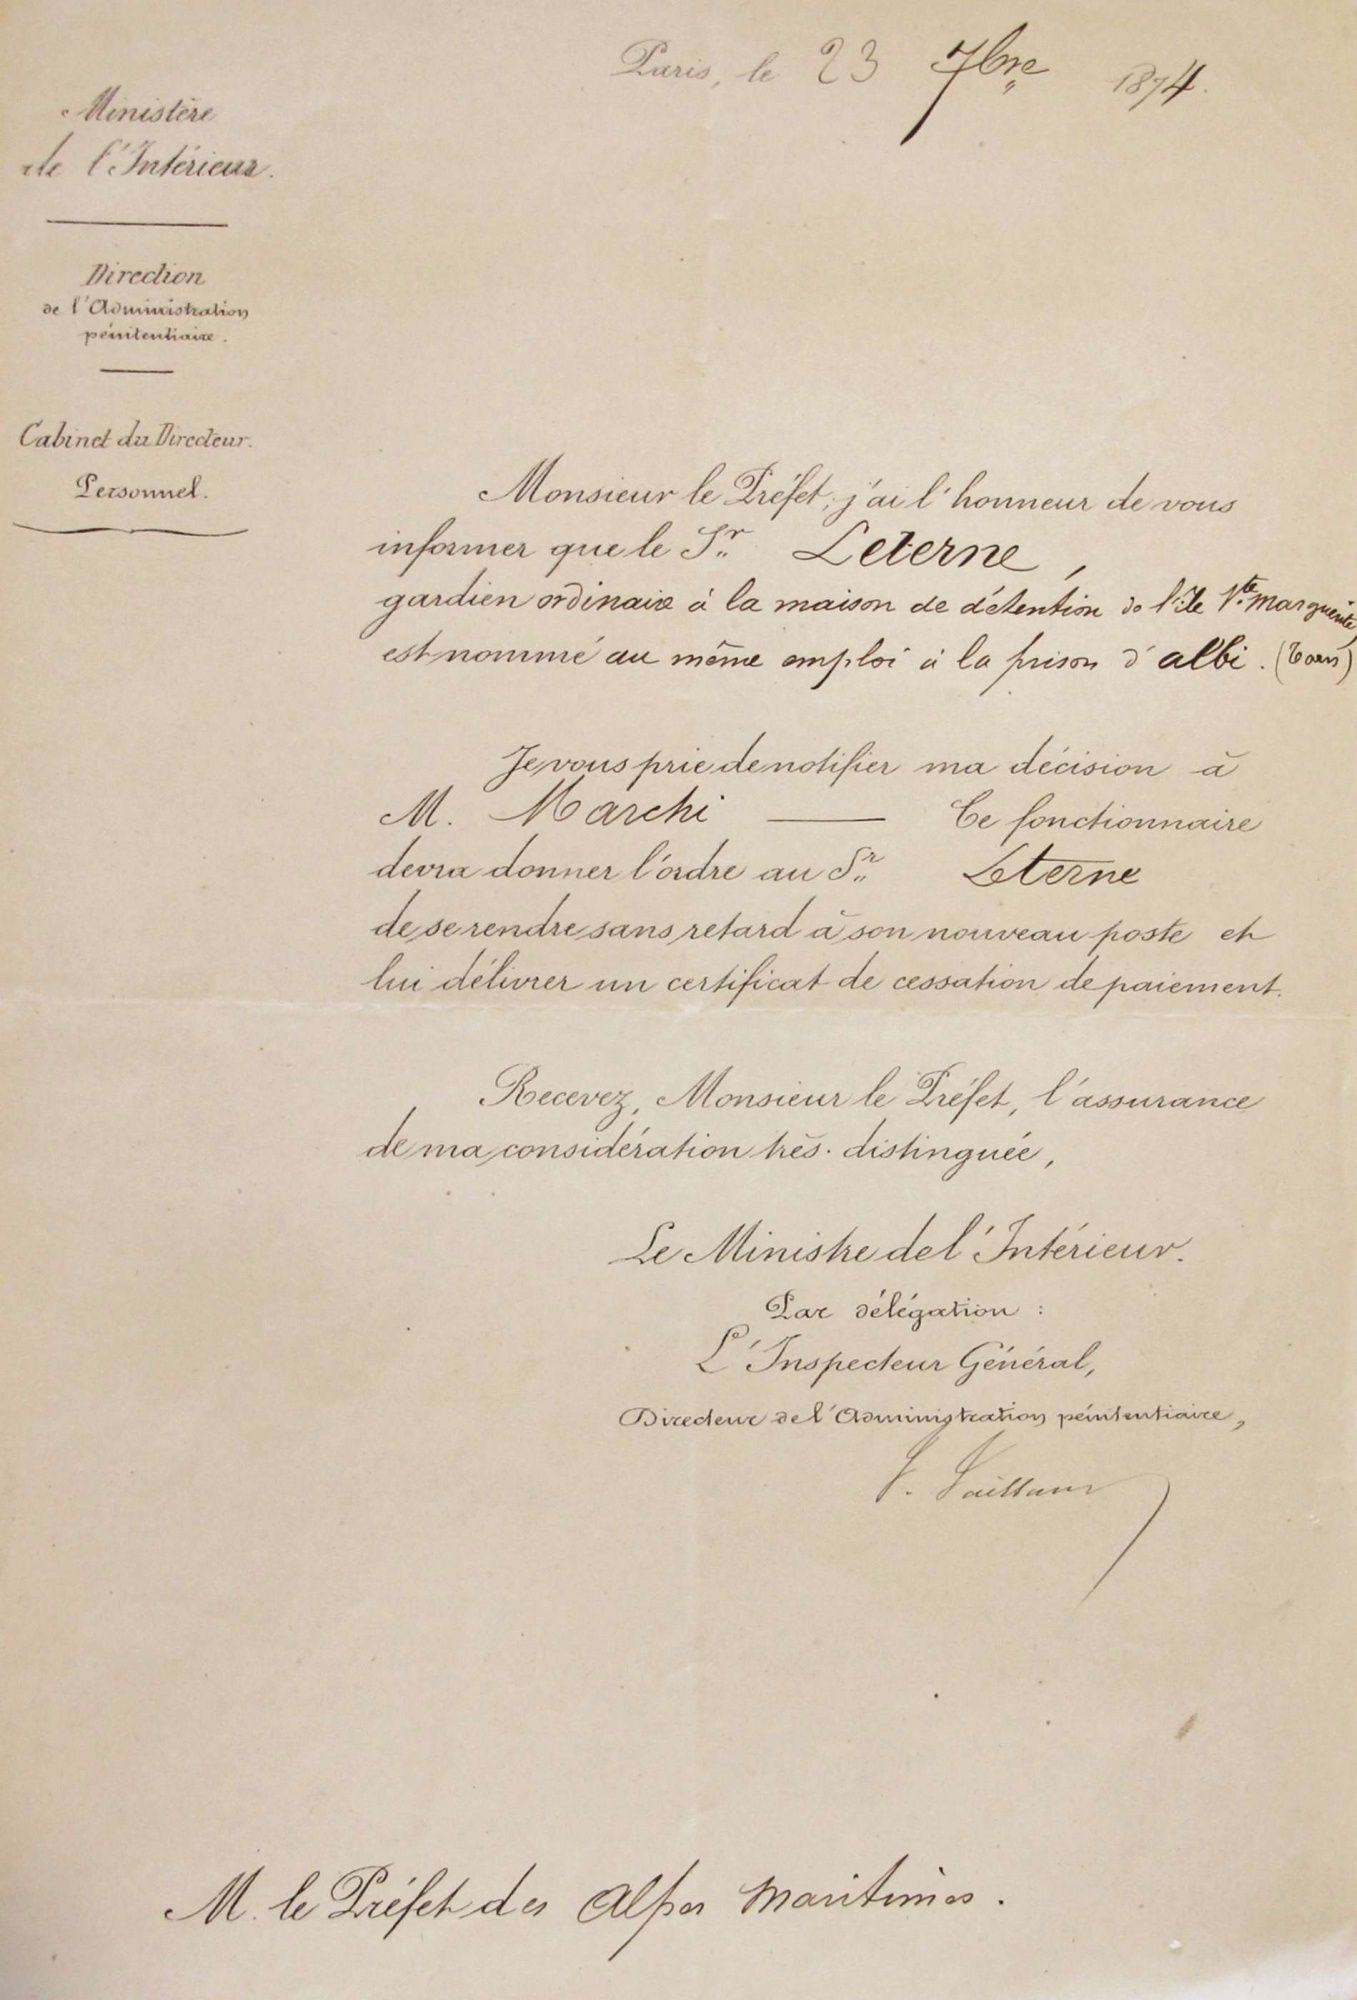 Paris, le 23 7bre 1874.
Ministère
de l'Intérieur.
Direction
de l'Administration
pénitentiaire.
Cabinet du Directeur.
Personnel.
Monsieur le Préfet, j'ai l'honneur de vous
informer que le Sr. Leterne,
gardien ordinaire à la maison de détention de l'Ile Ste Marguerite,
est nommé au même emploi à la prison d'albi. (Tarn)
Je vous prie de notifier ma décision à
M. Marchi — Ce fonctionnaire
devra donner l'ordre au Sr. Leterne
de se rendre sans retard à son nouveau poste et
lui délivrer un certificat de cessation de paiement.
Recevez, Monsieur le Préfet, l'assurance
de ma considération très-distinguée,
Le Ministre de l'Intérieur.
Par délégation :
L'Inspecteur Général,
Directeur de l'Administration pénitentiaire,
M. le Préfet des Alpes Maritimes.